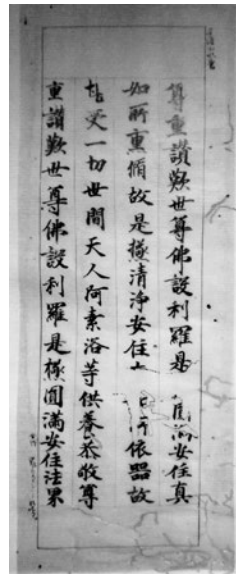 尊重讚歎世尊佛設利羅是圓滿安住真
如所重脩故是樣清淨安住所依器故
堪受一切世間天人阿素洛等供養恭敬尊
重讚歎世尊佛設利羅是樣圓滿安住法果